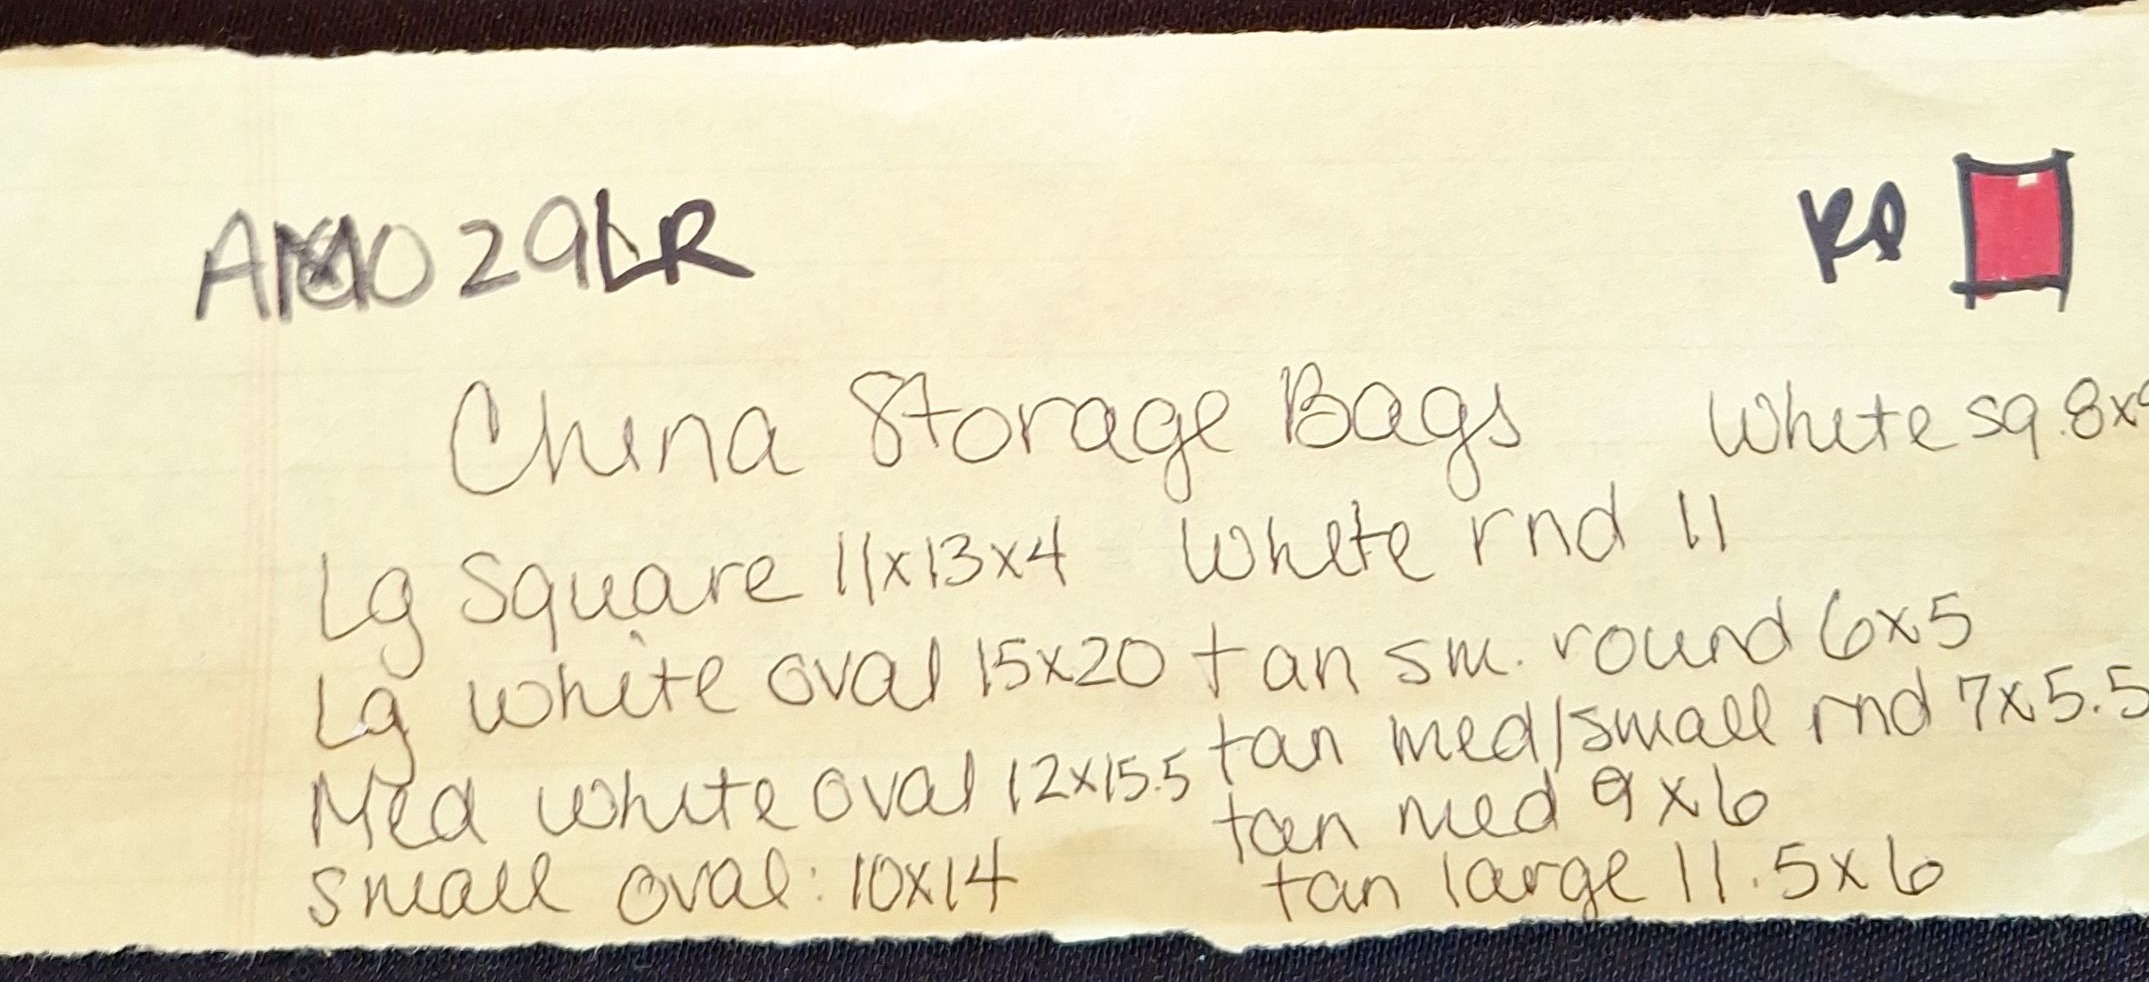 029LR
China Storage Bags White sq. 8x
Lg Square 11x13x4 White rnd 11
Lg white oval 15x20 tan sm. round 6x5
Med white oval 12x15.5 tan med/small rnd 7x5.5
small oval: 10x14 tan med 9x6
tan large 11.5x6